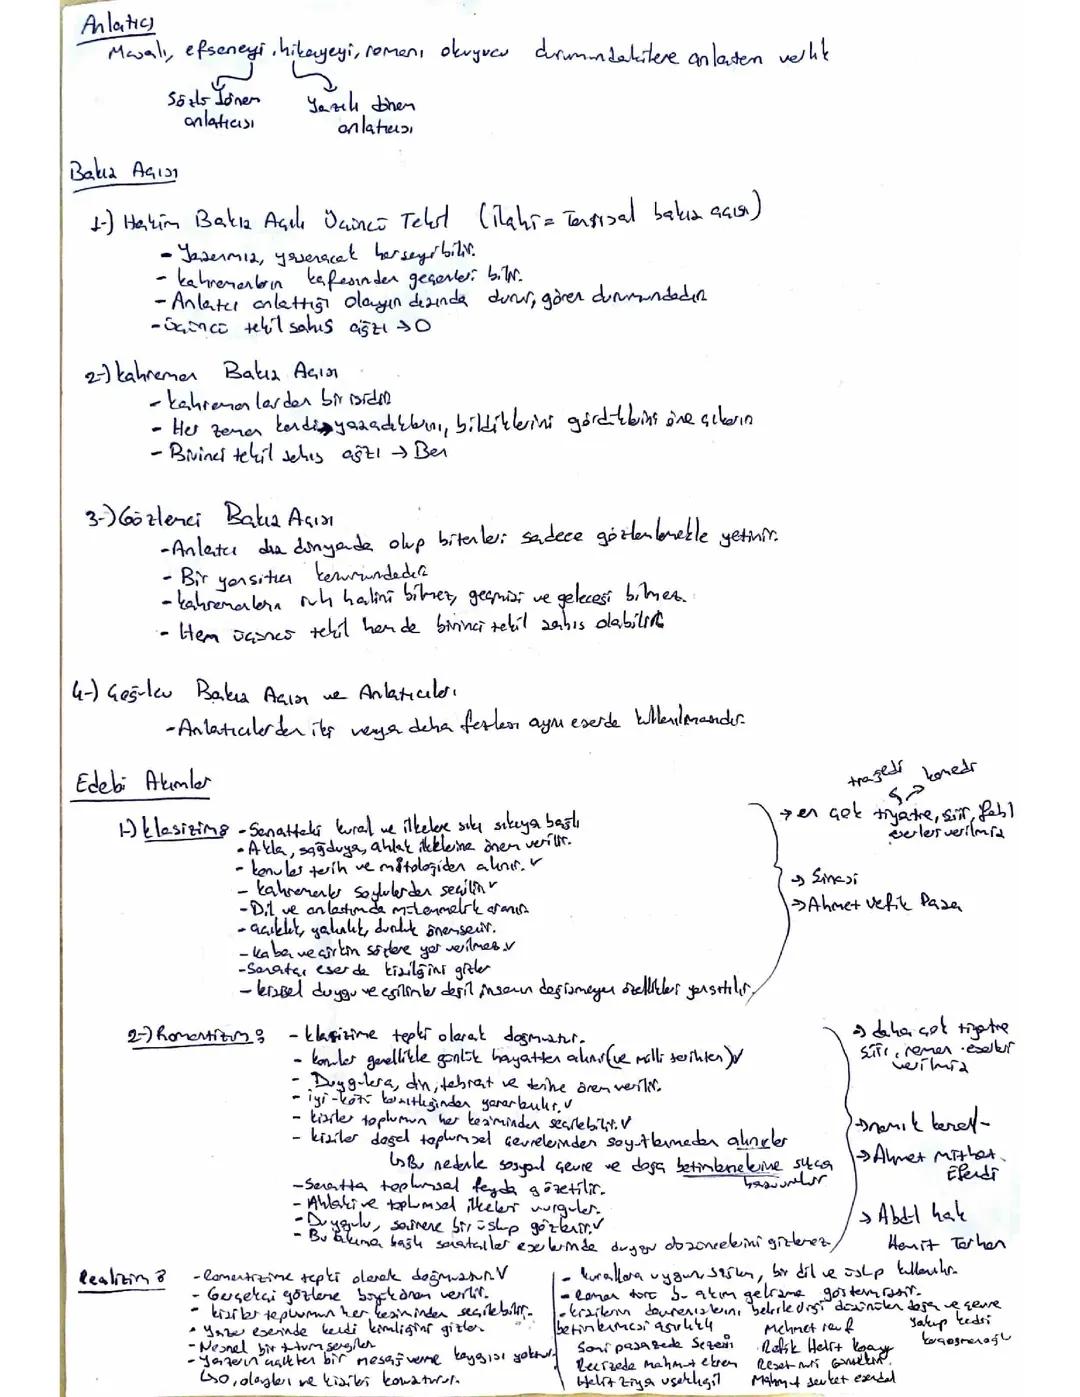 Anlatıcı
Masalı, efsaneyi, hikayeyi, romanı okuyucu durumundakilere anlatan varlık
Sözlü dönem anlatıcısı
Yazılı dönem anlatıcısı
Bakış Açısı
1-) Hakim Bakış Açılı Üçüncü Tekil (ilahi = Tanrısal bakış açısı)
- Yaşanmış, yaşanacak herşeyi bilir.
- kahramanların kafasından geçenleri bilir.
- Anlatıcı anlattığı olayın dışında durur, gören durumundadır
- üçüncü tekil şahıs ağzı → O
2-) kahraman Bakış Açısı
- kahramanlardan birisidir
- Her zaman kendi yaşadıklarını, bildiklerini gördüklerini öne çıkarır
- Birinci tekil şahıs ağzı → Ben
3-) Gözlemci Bakış Açısı
- Anlatıcı dış dünyada olup bitenleri sadece gözlemlemekle yetinir.
- Bir yansıtıcı konumundadır
- kahramanların ruh halini bilmez, geçmişi ve geleceği bilmez.
- Hem üçüncü tekil hem de birinci tekil şahıs olabilir
4-) Çoğulcu Bakış Açısı ve Anlatıcıları
- Anlatıcılardan iki veya daha fazlası aynı eserde kullanılmasıdır
Edebi Akımlar
1-) klasizim: - Sanattaki kural ve ilkelere sıkı sıkıya bağlı
- Akla, sağduyu, ahlak ilkelerine önem verilir.
- konular tarih ve mitolojiden alınır. ✓
- kahramanlar soylulardan seçilir ✓
- Dil ve anlatımda mükemmellik aranır
- açıklık, yalınlık, duruluk önemsenir.
- kaba ve çirkin sözlere yer verilmez ✓
- Sanatçı eserde kişiliğini gizler
- kişisel duygu ve eğilimler değil, insanın değişmeyen özellikleri yansıtılır.
tragedi komedi
→ en çok tiyatro, şiir, fabl eserler verilmiş
→ Şinasi
→ Ahmet Vefik Paşa
2-) Romantizm: - klasizime tepki olarak doğmuştur.
- konular genellikle günlük hayattan alınır (ve milli tarihten) ✓
- Duygulara, din, tabiat ve tarihe önem verilir.
- iyi-kötü karşıtlığından yararlanılır. ✓
- kişiler toplumun her kesiminden seçilebilir. ✓
- kişiler doğal toplumsal çevrelerinden soyutlanmadan alınırlar
↳ Bu nedenle sosyal çevre ve doğa betimlemelerine sıkça başvurulur
- Sanatta toplumsal fayda gözetilir.
- Ahlaki ve toplumsal ilkeleri vurgular.
- Duygulu, şairane bir üslup gözlenir. ✓
- Bu akıma bağlı sanatçılar eserlerinde duygu düşüncelerini gizlemez
→ daha çok tiyatro şiir, roman eserleri verilmiş
→ namık kemal
→ Ahmet Mithat Efendi
→ Abdülhak Hamit Tarhan
Realizm: - Romantizime tepki olarak doğmuştur. ✓
- Gerçekçi gözleme büyük önem verilir.
- kişiler toplumun her kesiminden seçilebilir.
- Yazar eserinde kendi kimliğini gizler
- Nesnel bir tutum sergiler
- Yazarın açıktan bir mesaj verme kaygısı yoktur.
↳ O, olayları ve kişileri konuşturur.
- kurallara uygun, bir dil ve üslup kullanılır.
- Roman türü bu akım gelişme göstermiştir.
- kişilerin davranışlarını belirlediği düşünülen doğa ve çevre betimlemesi ağırlıklı
Sami paşazade Sezai
Recaizade mahmut ekrem
Halit ziya uşaklıgil
Mehmet rauf
Refik Halit karay
Reşat nuri Güntekin
Mahmut şevket esendal
Yakup kadri karaosmanoğlu